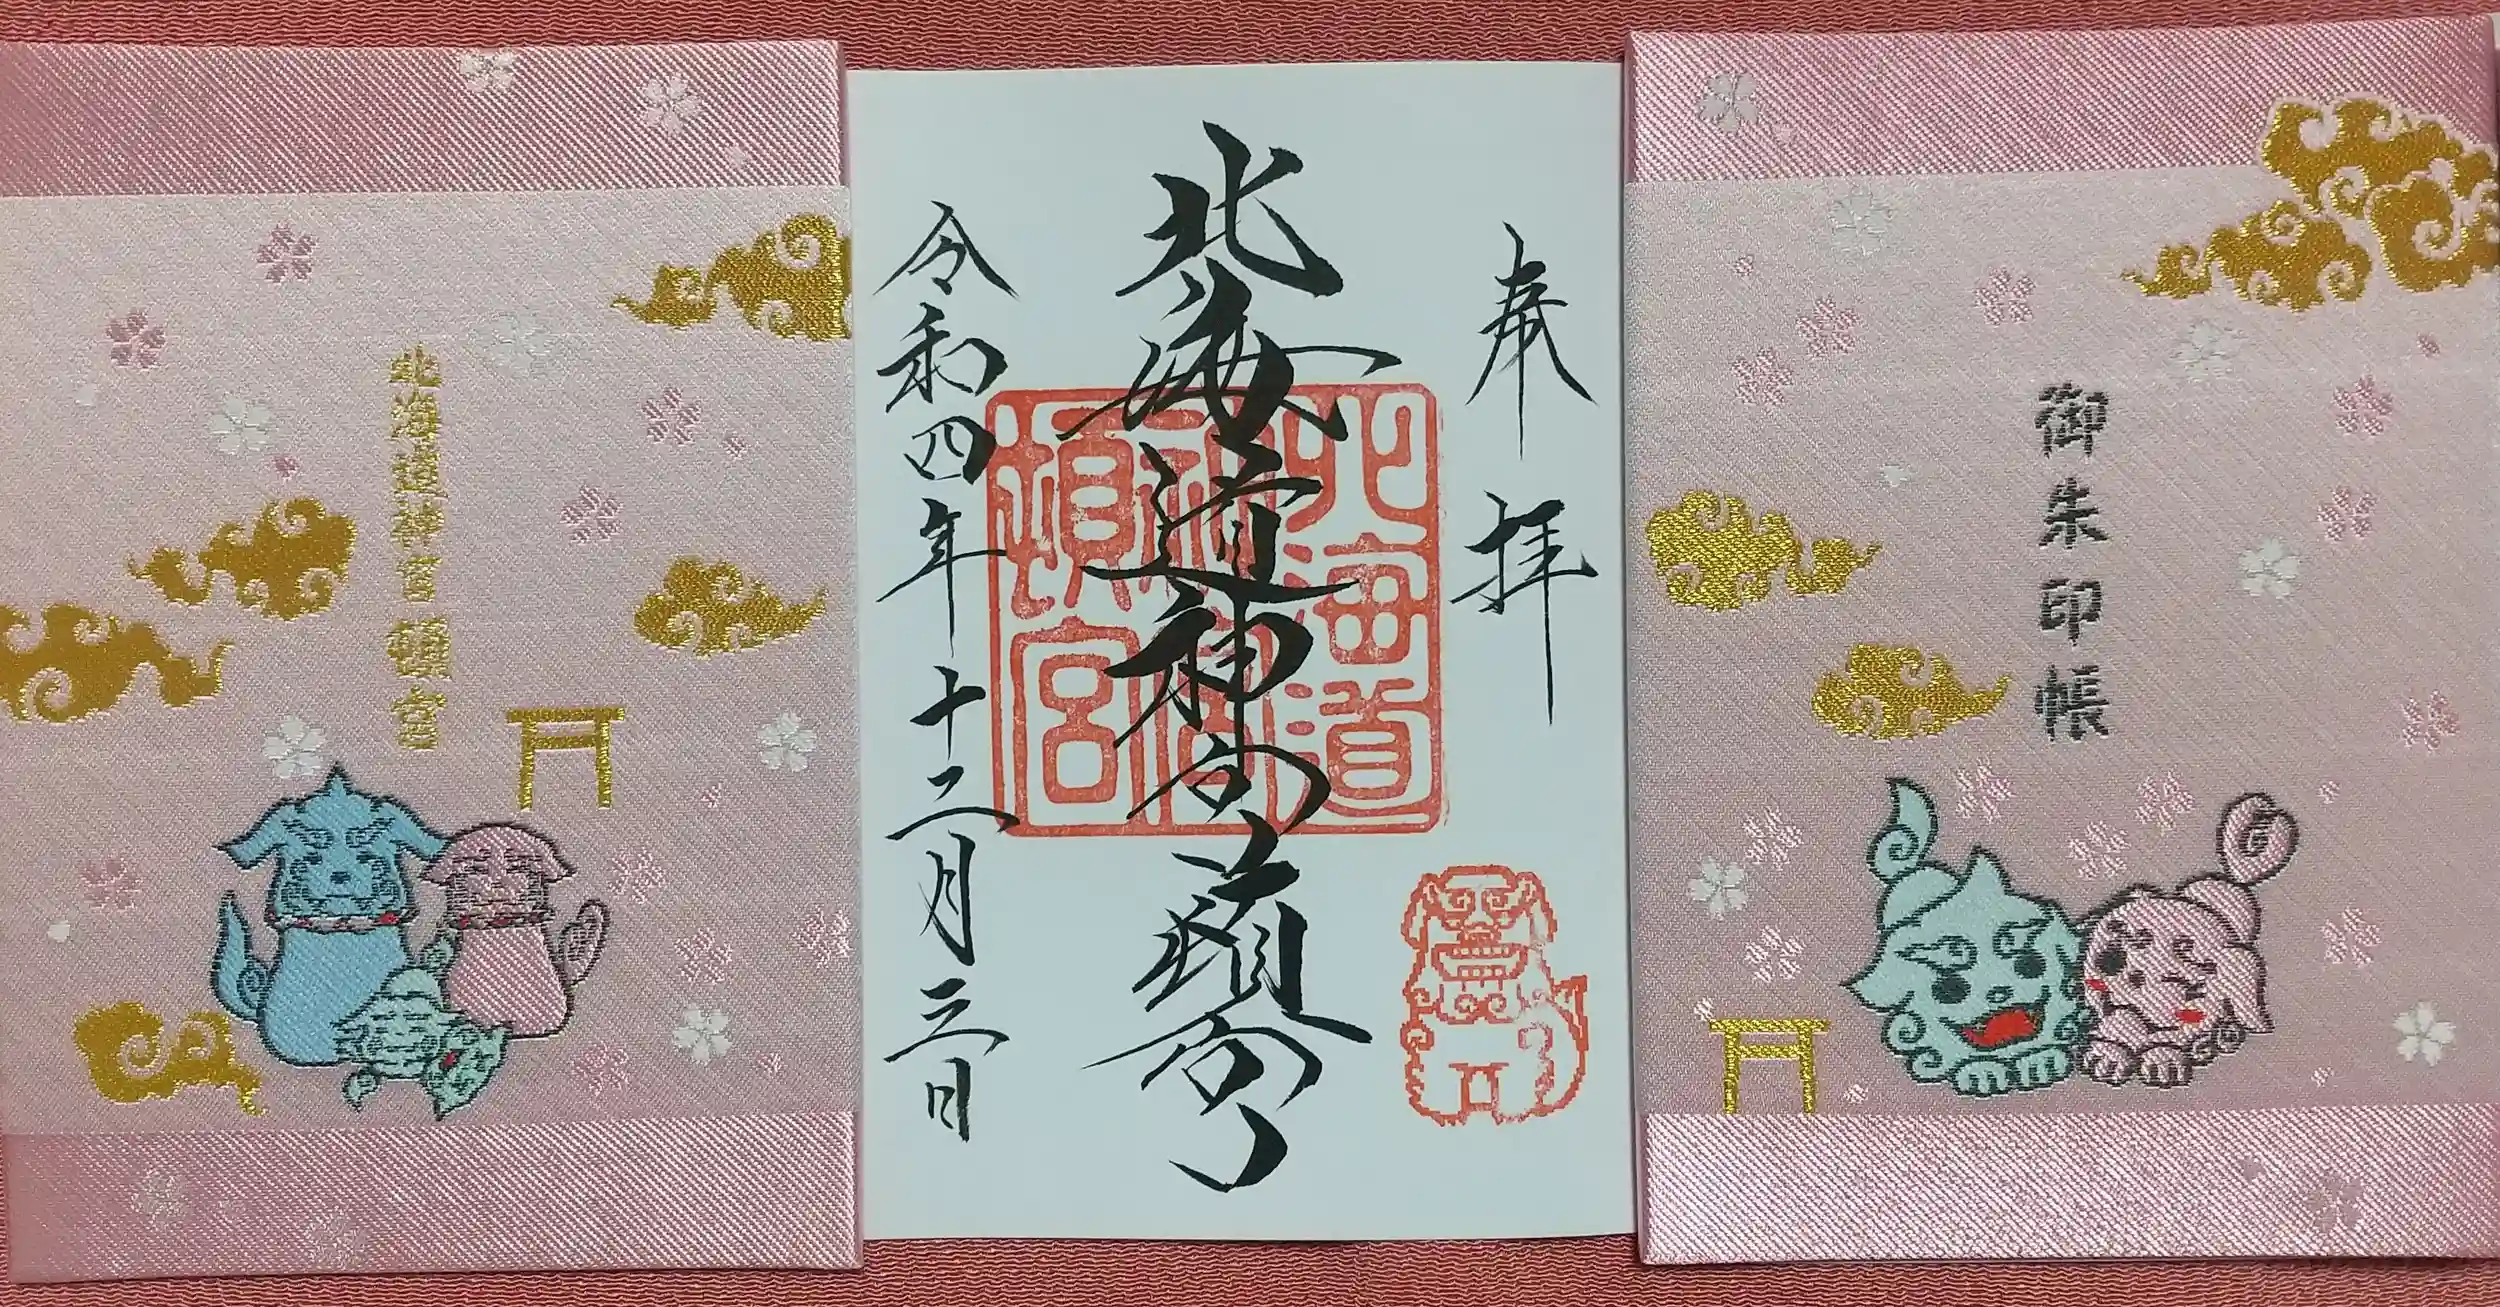 御朱印帳
奉拝
北海道神宮頓宮
令和四年十二月三日
北海道
神宮
頓宮
北海道神宮頓宮